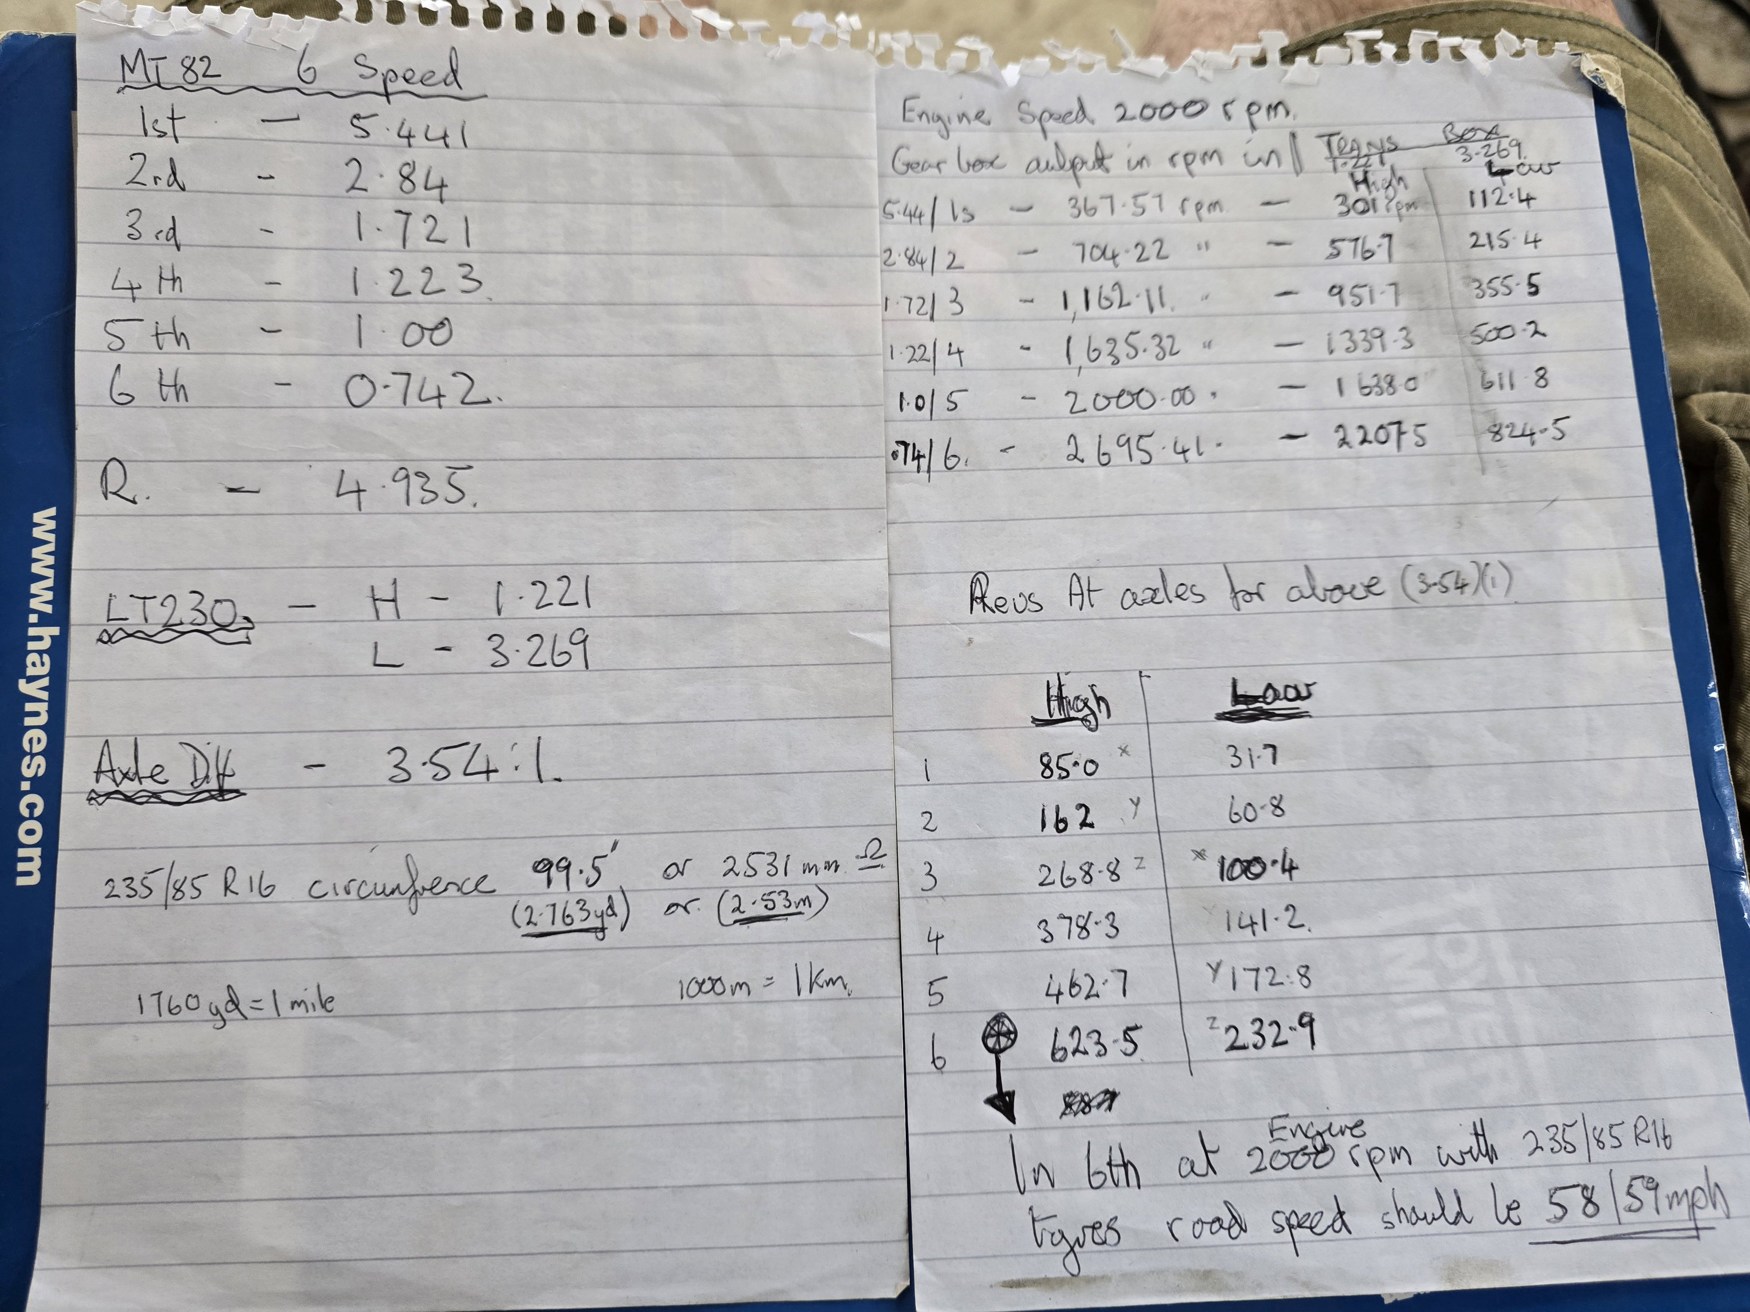 MT82 6 Speed
1st - 5.441
2rd - 2.84
3rd - 1.721
4th - 1.223.
5th - 1.00
6th - 0.742.
R. - 4.935.
LT230. - H - 1.221
L - 3.269
Axle Diff - 3.54:1.
235/85 R16 circumfrence 99.5" or 2531mm Ω
(2.763yd) or (2.53m)
1760yd = 1 mile 1000m = 1Km.
www.haynes.com
Engine Speed 2000 rpm.
Gear box output in rpm in // TRANS BOX
1.221 3.269
High Low
5.44/1s - 367.57 rpm - 301rpm 112.4
2.84/2 - 704.22 " - 576.7 215.4
1.72/3 - 1,162.11. " - 951.7 355.5
1.22/4 - 1,635.32 " - 1339.3 500.2
1.0/5 - 2000.00 . - 1638.0 611.8
.74/6. - 2695.41. - 2207.5 824.5
Revs At axles for above (3.54)(1)
High Low
1 85.0 x 31.7
2 162 y 60.8
3 268.8 z x 100.4
4 378.3 141.2.
5 462.7 y 172.8
6 623.5 z 232.9
Engine
In 6th at 2000 rpm with 235/85 R16
tyres road speed should be 58/59mph